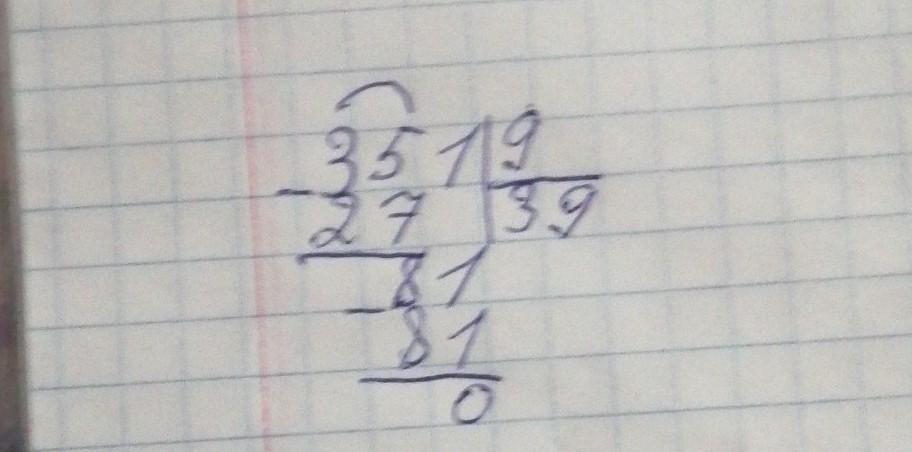 351|9
-27 |39
-81
81
0